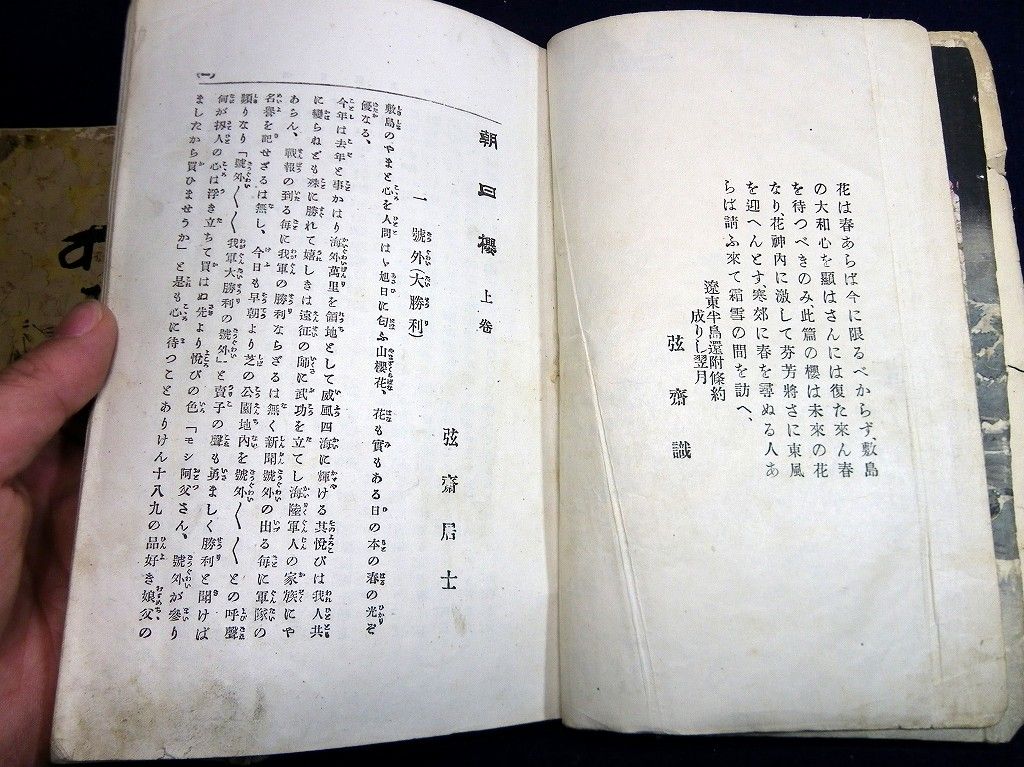 花は春あらば今に限るべからず、敷島
の大和心を顯はさんには復た來ん春
を待つべきのみ此篇の櫻は未來の花
なり、花神内に激して芬芳將さに東風
を迎へんとす、寒郊に春を尋ぬる人あ
らば請ふ來て霜雪の間を訪へ、
遼東半島還附條約
成りし翌月
弦齋識
朝日櫻 上卷
弦齋居士
一 號外(大勝利)
敷島のやまと心を人問はゞ旭日に匂ふ山櫻花、花も實もある日の本の春の光ぞ
優なる、
今年は去年と事かはり海外萬里を領地として威風四海に輝ける其悦びは我人共
に變らねども殊に勝れて嬉しきは遠征の師に武功を立てし海陸軍人の家族にや
あらん、戰報の到る毎に我軍の勝利ならざるは無く新聞號外の出る毎に軍隊の
名譽を記せざるは無し、今日も早朝より芝の公園地内を號外〱〱との呼聲
頻りなり「號外〱〱我軍大勝利の號外」と賣子の聲も勇ましく勝利と聞けば
何が扨人の心は浮き立ちて買はぬ先より悦びの色「モシ阿父さん、號外が參り
ましたから買ひませうか」と是も心に待つことありけん十八九の品好き娘父の
(一)